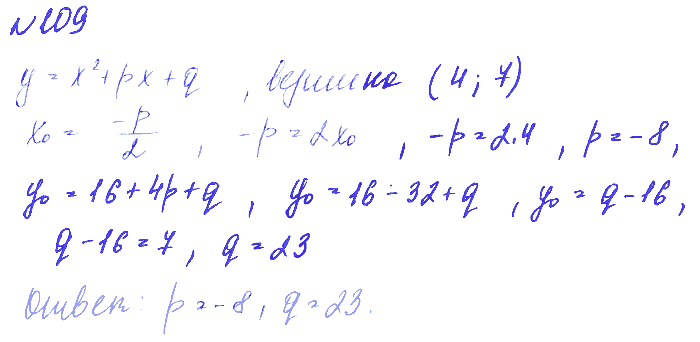 №109
y = x² + px + q , вершина (4; 7)
x₀ = -p/2 , -p = 2x₀ , -p = 2.4 , p = -8 ,
y₀ = 16 + 4p + q , y₀ = 16 - 32 + q , y₀ = q - 16 ,
q - 16 = 7 , q = 23
Ответ: p = -8 , q = 23.